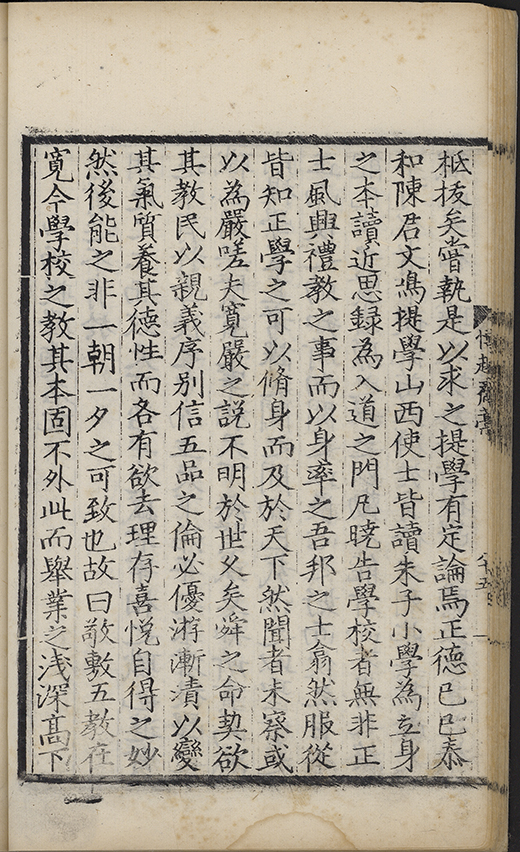 柢拔矣嘗執是以求之提學有定論焉正德己巳泰
和陳君文鳴提學山西使士皆讀朱子小學為立身
之本讀近思録為入道之門凡曉告學校者無非正
士風興禮教之事而以身率之吾邦之士翕然服從
皆知正學之可以脩身而及於天下然聞者未察或
以為嚴嗟夫寬嚴之說不明於世久矣舜之命契欲
其教民以親義序别信五品之倫必優游漸漬以變
其氣質養其德性而各有欲去理存喜悦自得之妙
然後能之非一朝一夕之可致也故曰敬敷五教在
寬今學校之教其本固不外此而舉業之浅深高下